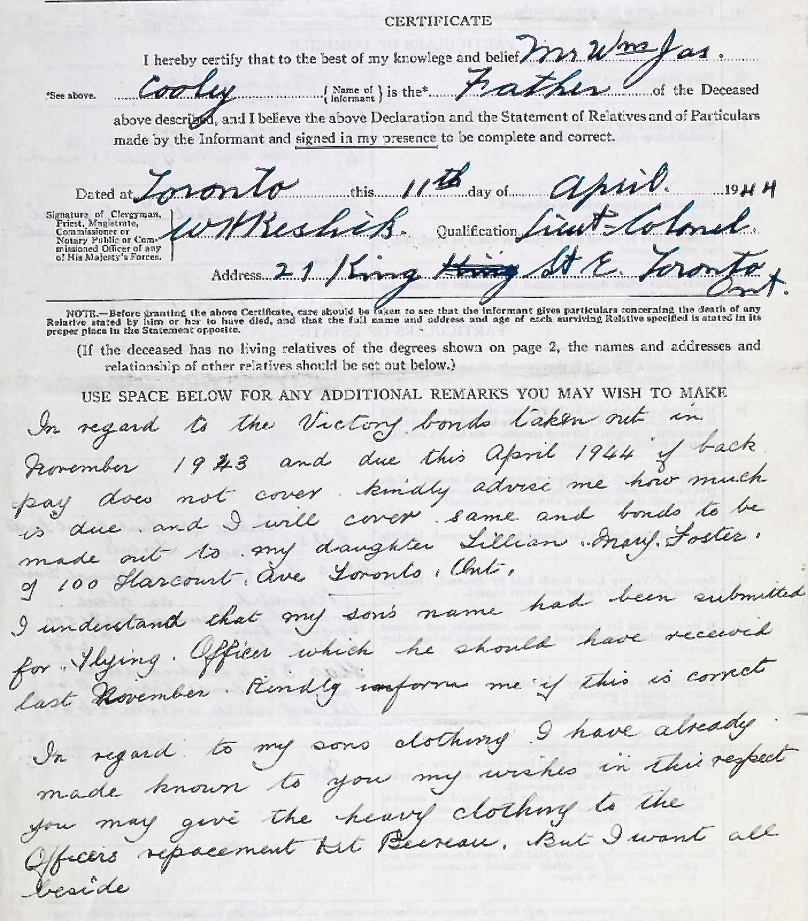 CERTIFICATE
I hereby certify that to the best of my knowlege and belief Mr Wm Jas.
*See above. Cooley {Name of Informant} is the* Father of the Deceased
above described, and I believe the above Declaration and the Statement of Relatives and of Particulars
made by the Informant and signed in my presence to be complete and correct.
Dated at Toronto this 11th day of April. 1944
Signature of Clergyman,
Priest, Magistrate,
Commissioner or
Notary Public or Com-
missioned Officer of any
of His Majesty's Forces.
Qualification Lieut-Colonel.
Address 21 King King St E. Toronto
Ont.
NOTE.—Before granting the above Certificate, care should be taken to see that the informant gives particulars concerning the death of any
Relative stated by him or her to have died, and that the full name and address and age of each surviving Relative specified is stated in its
proper place in the Statement opposite.
(If the deceased has no living relatives of the degrees shown on page 2, the names and addresses and
relationship of other relatives should be set out below.)
USE SPACE BELOW FOR ANY ADDITIONAL REMARKS YOU MAY WISH TO MAKE
In regard to the Victory bonds taken out in
November 1943 and due this April 1944 if back
pay does not cover. kindly advise me how much
is due. and I will cover. same and bonds to be
made out to. my daughter Lillian. Mary. Foster.
of 100 Harcourt. Ave Toronto. Ont.
I understand that my son's name had been submitted
for. Flying. Officer which he should have received
last November. Kindly inform me if this is correct
In regard to my sons clothing I have already
made known to you my wishes in this respect
you may give the heavy clothing to the
Officers repacement Kit Beureau. But I want all
beside